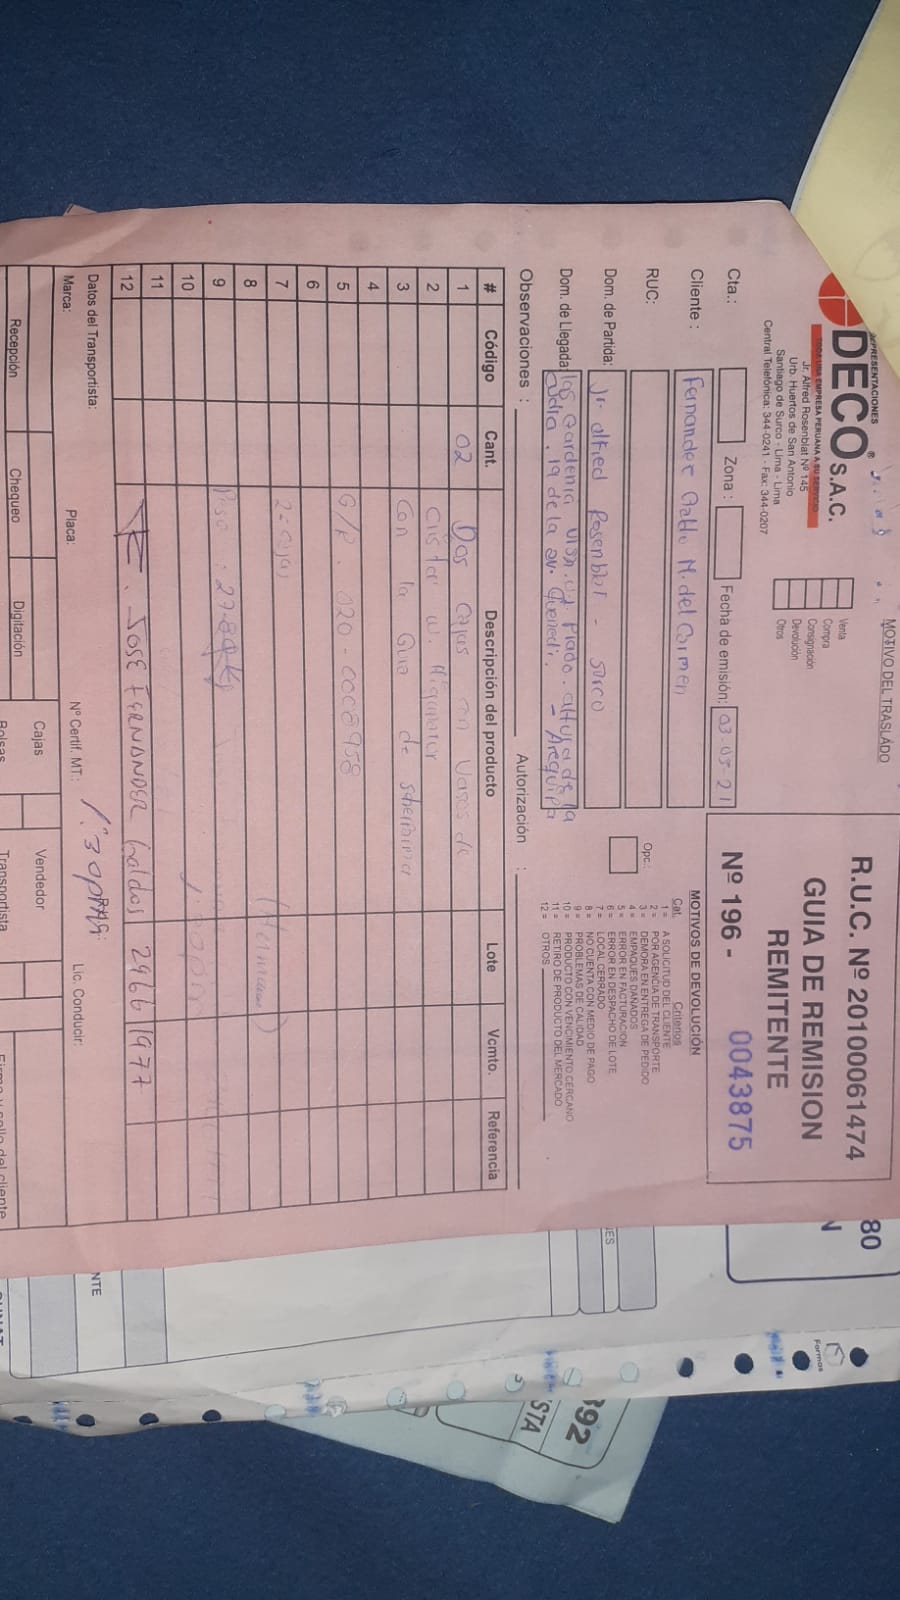 REPRESENTACIONES
DECO S.A.C.
®
TODA UNA EMPRESA PERUANA A SU SERVICIO
Jr. Alfred Rosenblat Nº 145
Urb. Huertos de San Antonio
Santiago de Surco - Lima - Lima
Central Telefónica: 344-0241 - Fax: 344-0207
MOTIVO DEL TRASLADO
Venta
Compra
Consignación
Devolución
Otros
R.U.C. Nº 20100061474
GUIA DE REMISION
REMITENTE
Nº 196 - 0043875
Cta.: Zona : Fecha de emisión: 03-05-21
Cliente : Fernandez Pablo M. del Carmen
RUC:
Dom. de Partida: Jr. Alfred Rosenblat - Surco
Dom. de Llegada: los Gardenia
cdra. 19 de la av. - Arequipa
Opc.:
MOTIVOS DE DEVOLUCIÓN
Cat. Criterios
1 = A SOLICITUD DEL CLIENTE
2 = POR AGENCIA DE TRANSPORTE
3 = DEMORA EN ENTREGA DE PEDIDO
4 = EMPAQUES DAÑADOS
5 = ERROR EN FACTURACION
6 = ERROR EN DESPACHO DE LOTE
7 = LOCAL CERRADO
8 = NO CUENTA CON MEDIO DE PAGO
9 = PROBLEMAS DE CALIDAD
10 = PRODUCTO CON VENCIMIENTO CERCANO
11 = RETIRO DE PRODUCTO DEL MERCADO
12 = OTROS
Observaciones : Autorización :
# Código Cant. Descripción del producto Lote Vcmto. Referencia
1 02 Dos cajas con Vasos de
2
3 Con la Guia de
4
5 G/R. 020-
6
7 2= cajas
8
9 Peso :
10
11
12 JOSE FERNANDEZ Galdos 29661977
Datos del Transportista:
Marca: Placa: Nº Certif. MT.: Lic. Conducir:
1:30pm
Recepción Chequeo Digitación Cajas Vendedor
Bolsas Transportista Firma y sello del cliente
80
N
NTE
Formas
392
ISTA